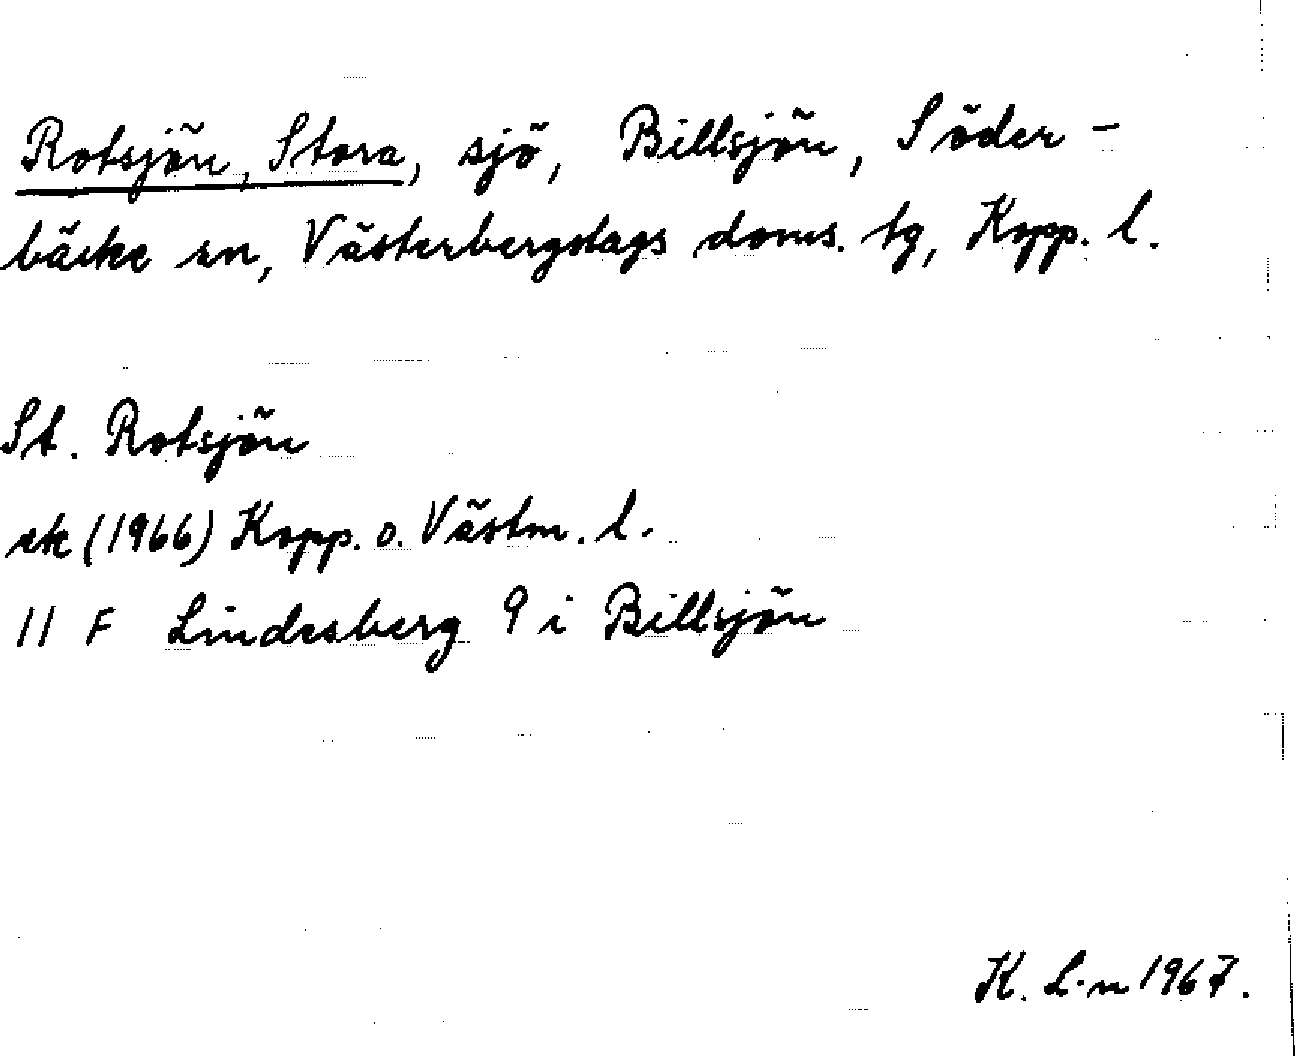 Rotsjön, Stora, sjö, Billsjön, Söder-
bärke sn, Västerbergslags doms. tg, Kopp. l.
St. Rotsjön
ek (1966) Kopp. o. Västm. l.
11 F Lindesberg 9 i Billsjön
K. L-n 1967.